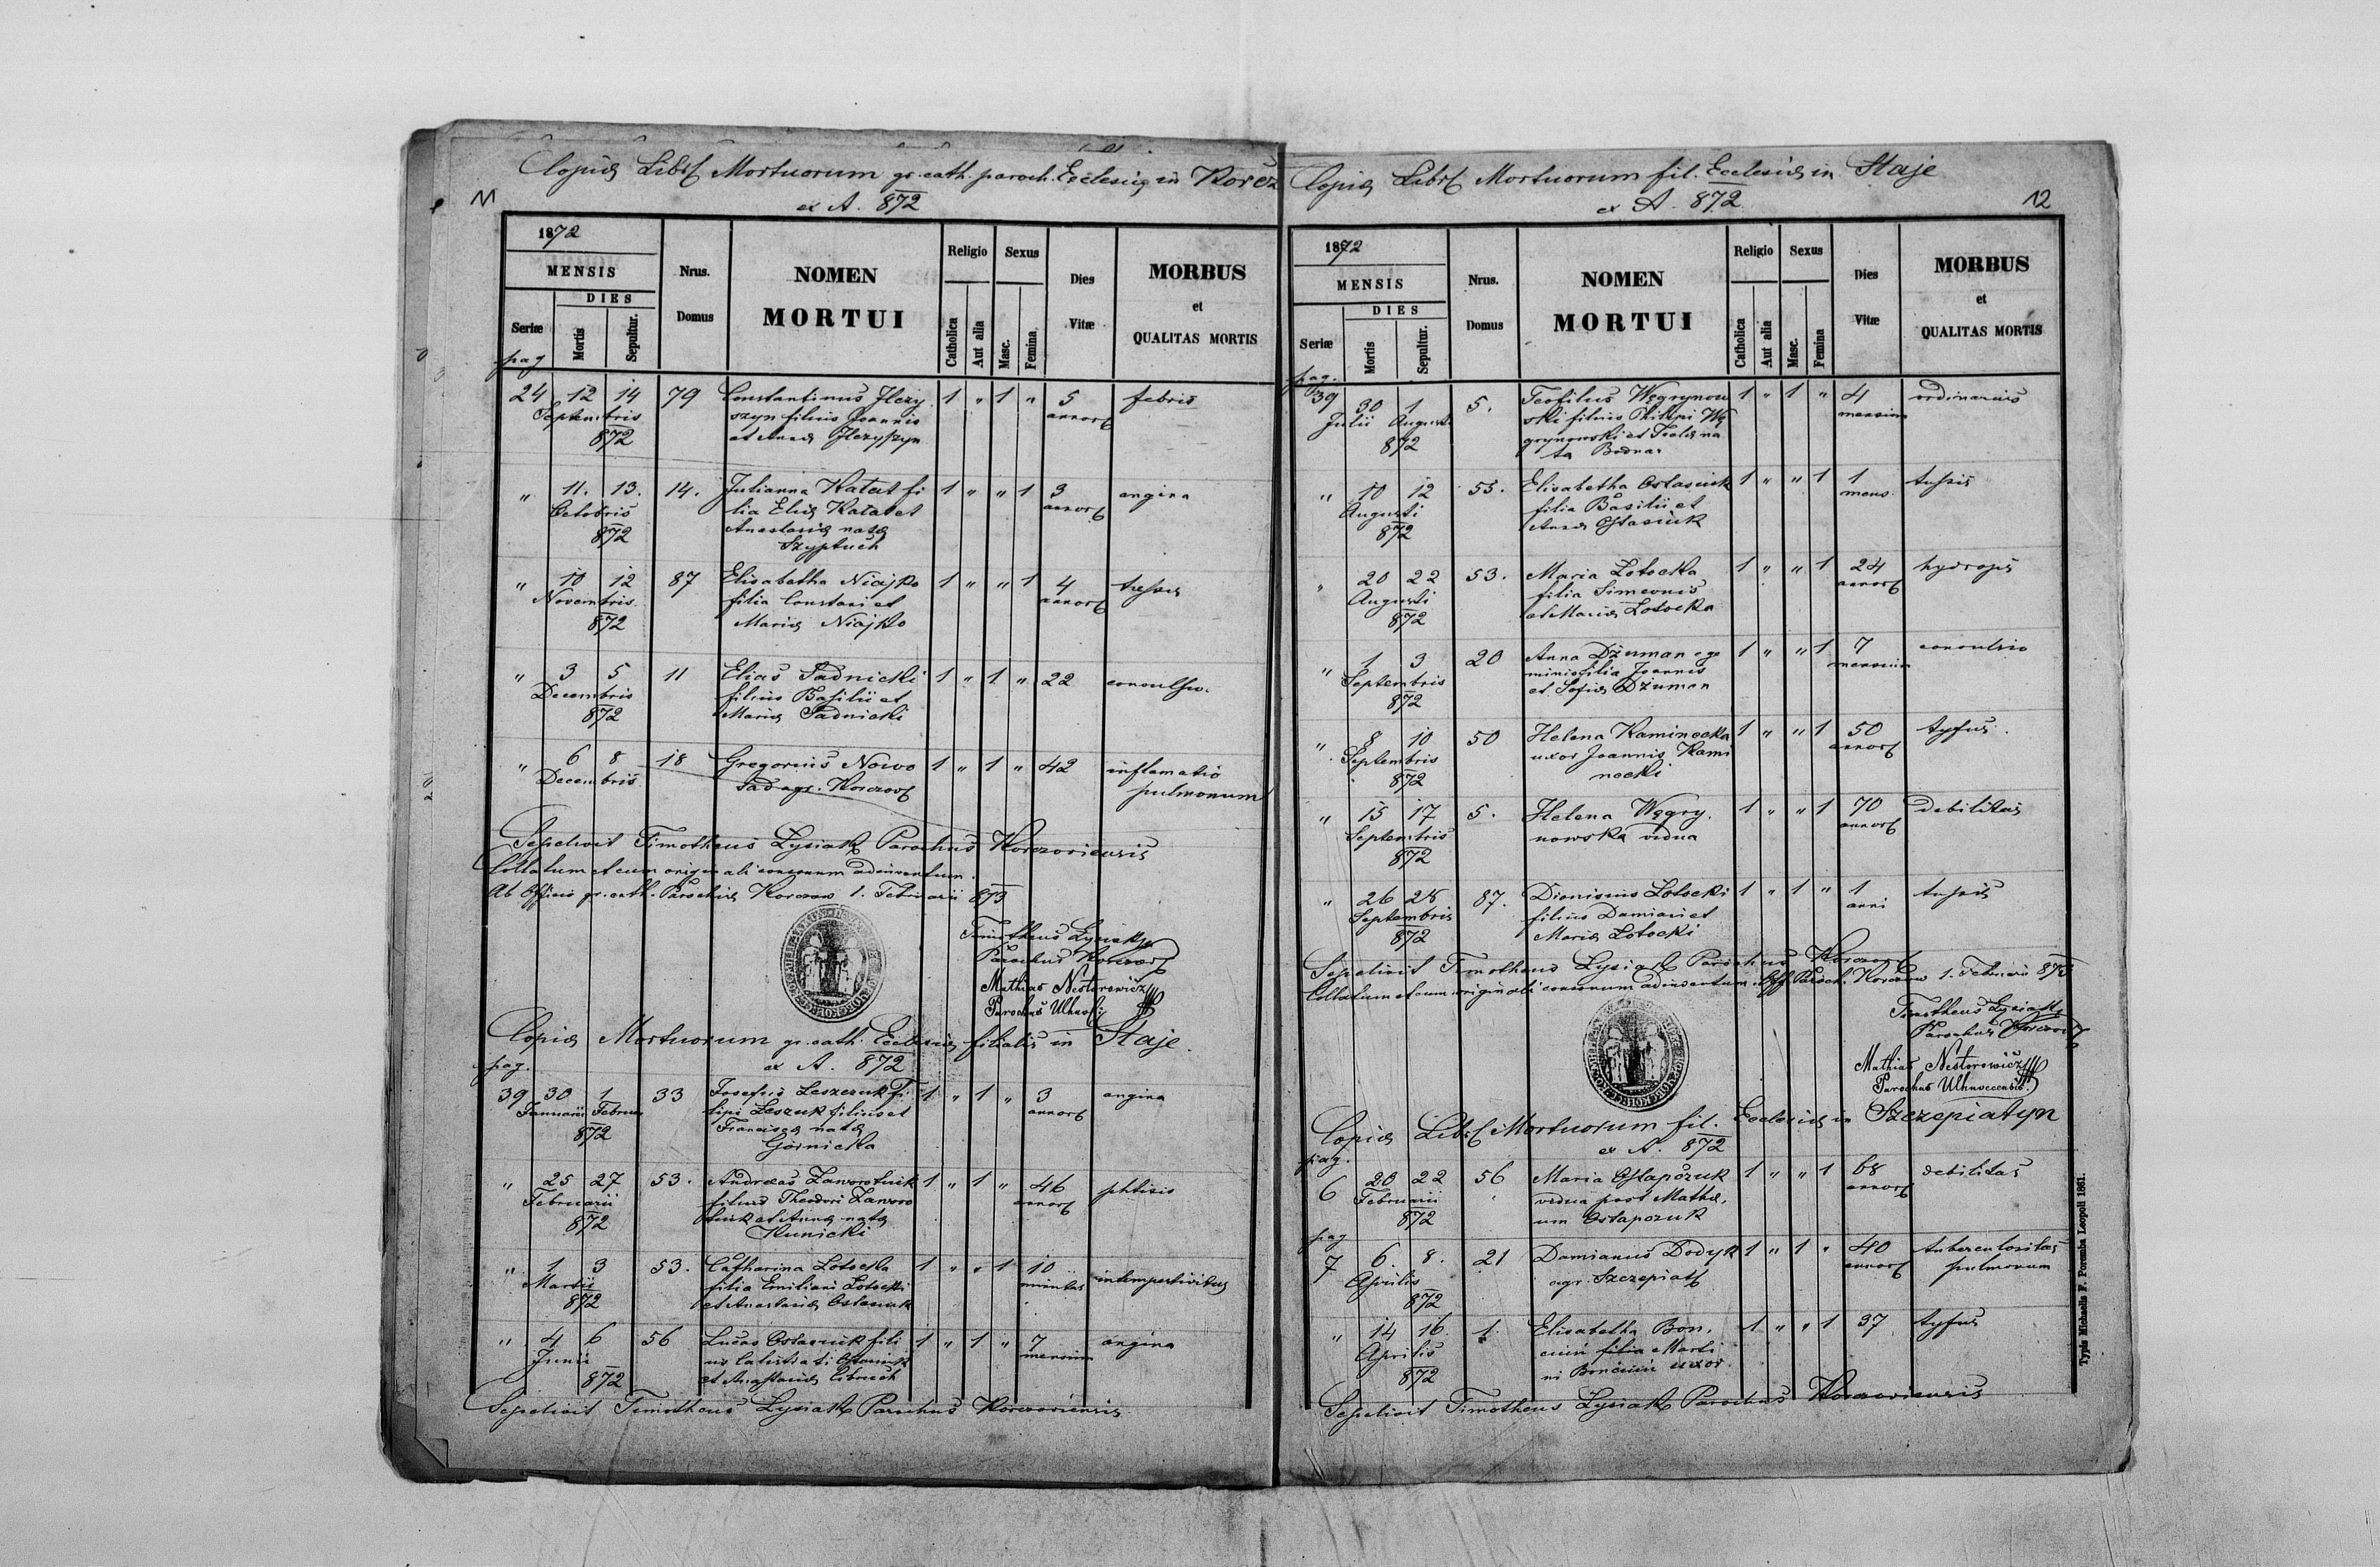 Copia Libri Mortuorum gr. cath. paroch. Ecclesiæ in Korcz
ex A. 872
11
1872
MENSIS
DIES
Seriæ
Mortis
Sepultur.
Nrus. Domus
NOMEN
MORTUI
Religio
Catholica
Aut alia
Sexus
Masc.
Femina
Dies
Vitæ
MORBUS
et
QUALITAS MORTIS
pag
24 12 14 79 Constantinus 1 " 1 " 5 febris
Septembris szyn filius Joannis annor
872 et Annæ
" 11. 13. 14. Julianna Katat fi 1 " " 1 3 angina
Octobris lia Eliæ Katat et annor
872 Anastasiæ natæ
Szyptuch
" 10 12 87 Elisabetha Niajko 1 " " 1 4 tussis
Novembris filia Constani et annor
872 Mariæ Niajko
" 3 5 11 Elias Sadnicki 1 " 1 " 22 convulsio.
Decembris filius Basilii et
872 Mariæ Sadnicki
" 6 8 18 Gregorius Nowo 1 " 1 " 42 inflamatio
Decembris sad agr. Korczov pulmonum
Sepelivit Timotheus Lysiak Parochus Korczoviensis
Collatum et cum originali consonum adinventum.
Ab Officio gr. cath. Parochiæ Korczow 1. Februarii 873
Timotheus Lysiak
Parochus Korczov
Mathias Nestorowicz
Parochus Uhnov
Copia Mortuorum gr. cath. Ecclesiæ filialis in Staje.
ex A. 872
pag.
39 30 1 33 Josefus Leszczuk Fi 1 " 1 " 3 angina
Januarii Februar lipi Leszuk filius et annor
872 Franciscæ natæ
Górnicka
" 25 27 53. Andreas Zaworotiuk 1 " 1 " 46 phtisis
Februarii filius Theodori Zaworo annor
872 tiuk et Annæ natæ
Kunicki
" 1 3 53. Catharina Lotocka 1 " " 1 10 intempestivitas
Martii filia Emiliani Lotocki minutas
872 et Anastasiæ Ostasiuk
" 4 6 56 Lucas Ostasiuk fili 1 " 1 " 7 angina
Junii us Calistrati Ostasiuk mensium
872 et Anastasiæ Cibruch
Sepelivit Timotheus Lysiak Parochus Korczoviensis
Copia Libri Mortuorum fil. Ecclesiæ in Staje
ex A. 872
12
1872
MENSIS
DIES
Seriæ
Mortis
Sepultur.
Nrus.
Domus
NOMEN
MORTUI
Religio
Catholica
Aut alia
Sexus
Masc.
Femina
Dies
Vitæ
MORBUS
et
QUALITAS MORTIS
pag.
39 30 1 5. Teofilus Węgrynow 1 " 1 " 4 ordinarius
Julii Augusti ski filius Philipi Wę mensium
872 grynowski et Teclæ na
ta Bodnar
" 10 12 55. Elisabetha Ostasiuk 1 " " 1 1 tussis
Augusti filia Basilii et mens
872 Annæ Ostasiuk
" 20 22 53. Maria Lotocka 1 " " 1 24 hydrops
Augusti filia Simeonis annor
872 et Mariæ Lotocka
" 1 3 20 Anna Dżuman ge 1 " " 1 7 convulsio
Septembris minis filia Joannis mensium
872 et Sofiæ Dżuman
" 8 10 50 Helena Kaminecka 1 " " 1 50 tyfus.
Septembris uxor Joannis Kami annor
872 necki
" 15 17 5. Helena Węgry. 1 " " 1 70 debilitas
Septembris nowska vidua annor
872
" 26 28 87. Dionisius Lotocki 1 " 1 " 1 tussis
Septembris filius Damiani et anni
872 Mariæ Lotocki
Sepelivit Timotheus Lysiak Parochus Korczov
Collatum et cum originali consonum adinventum. Off. Paroch. Korczow 1. Februarii 873
Timotheus Lysiak
Parochus Korczov
Mathias Nestorowicz
Parochus Uhnoviensis.
Copia Libri Mortuorum fil. Ecclesiæ in Szczepiatyn
ex A. 872
pag.
6 20 22 56 Maria Ostapczuk 1 " " 1 68 debilitas
Februarii vidua post Mathæ, annor
872 um Ostapczuk
pag
7 6. 8. 21 Damianus Dodyk 1 " 1 " 40 tuberculositas
Aprilis agr. Szczepiat annor pulmonum
872
" 14 16. 1. Elisabetha Bon, 1 " " 1 37 tyfus
Aprilis filia Marti
872 ni uxor
Sepelivit Timotheus Lysiak Parochus Korczoviensis
Typis Michaelis F. Poremba Leopoli 1861.